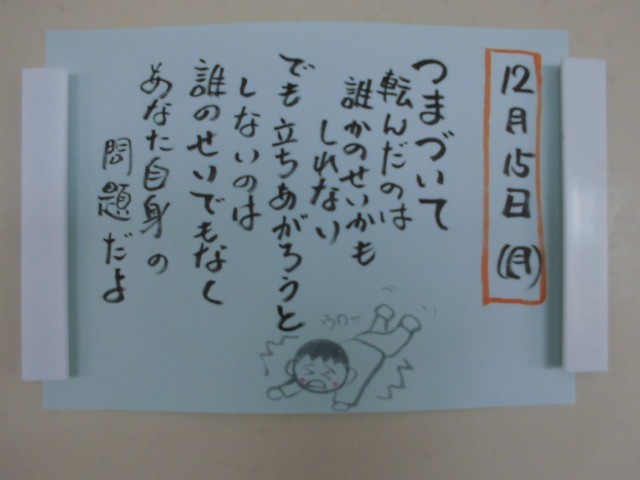 12月15日(月)
つまづいて
転んだのは
誰かのせいかも
しれない
でも立ちあがろうと
しないのは
誰のせいでもなく
あなた自身の
問題だよ
うわー